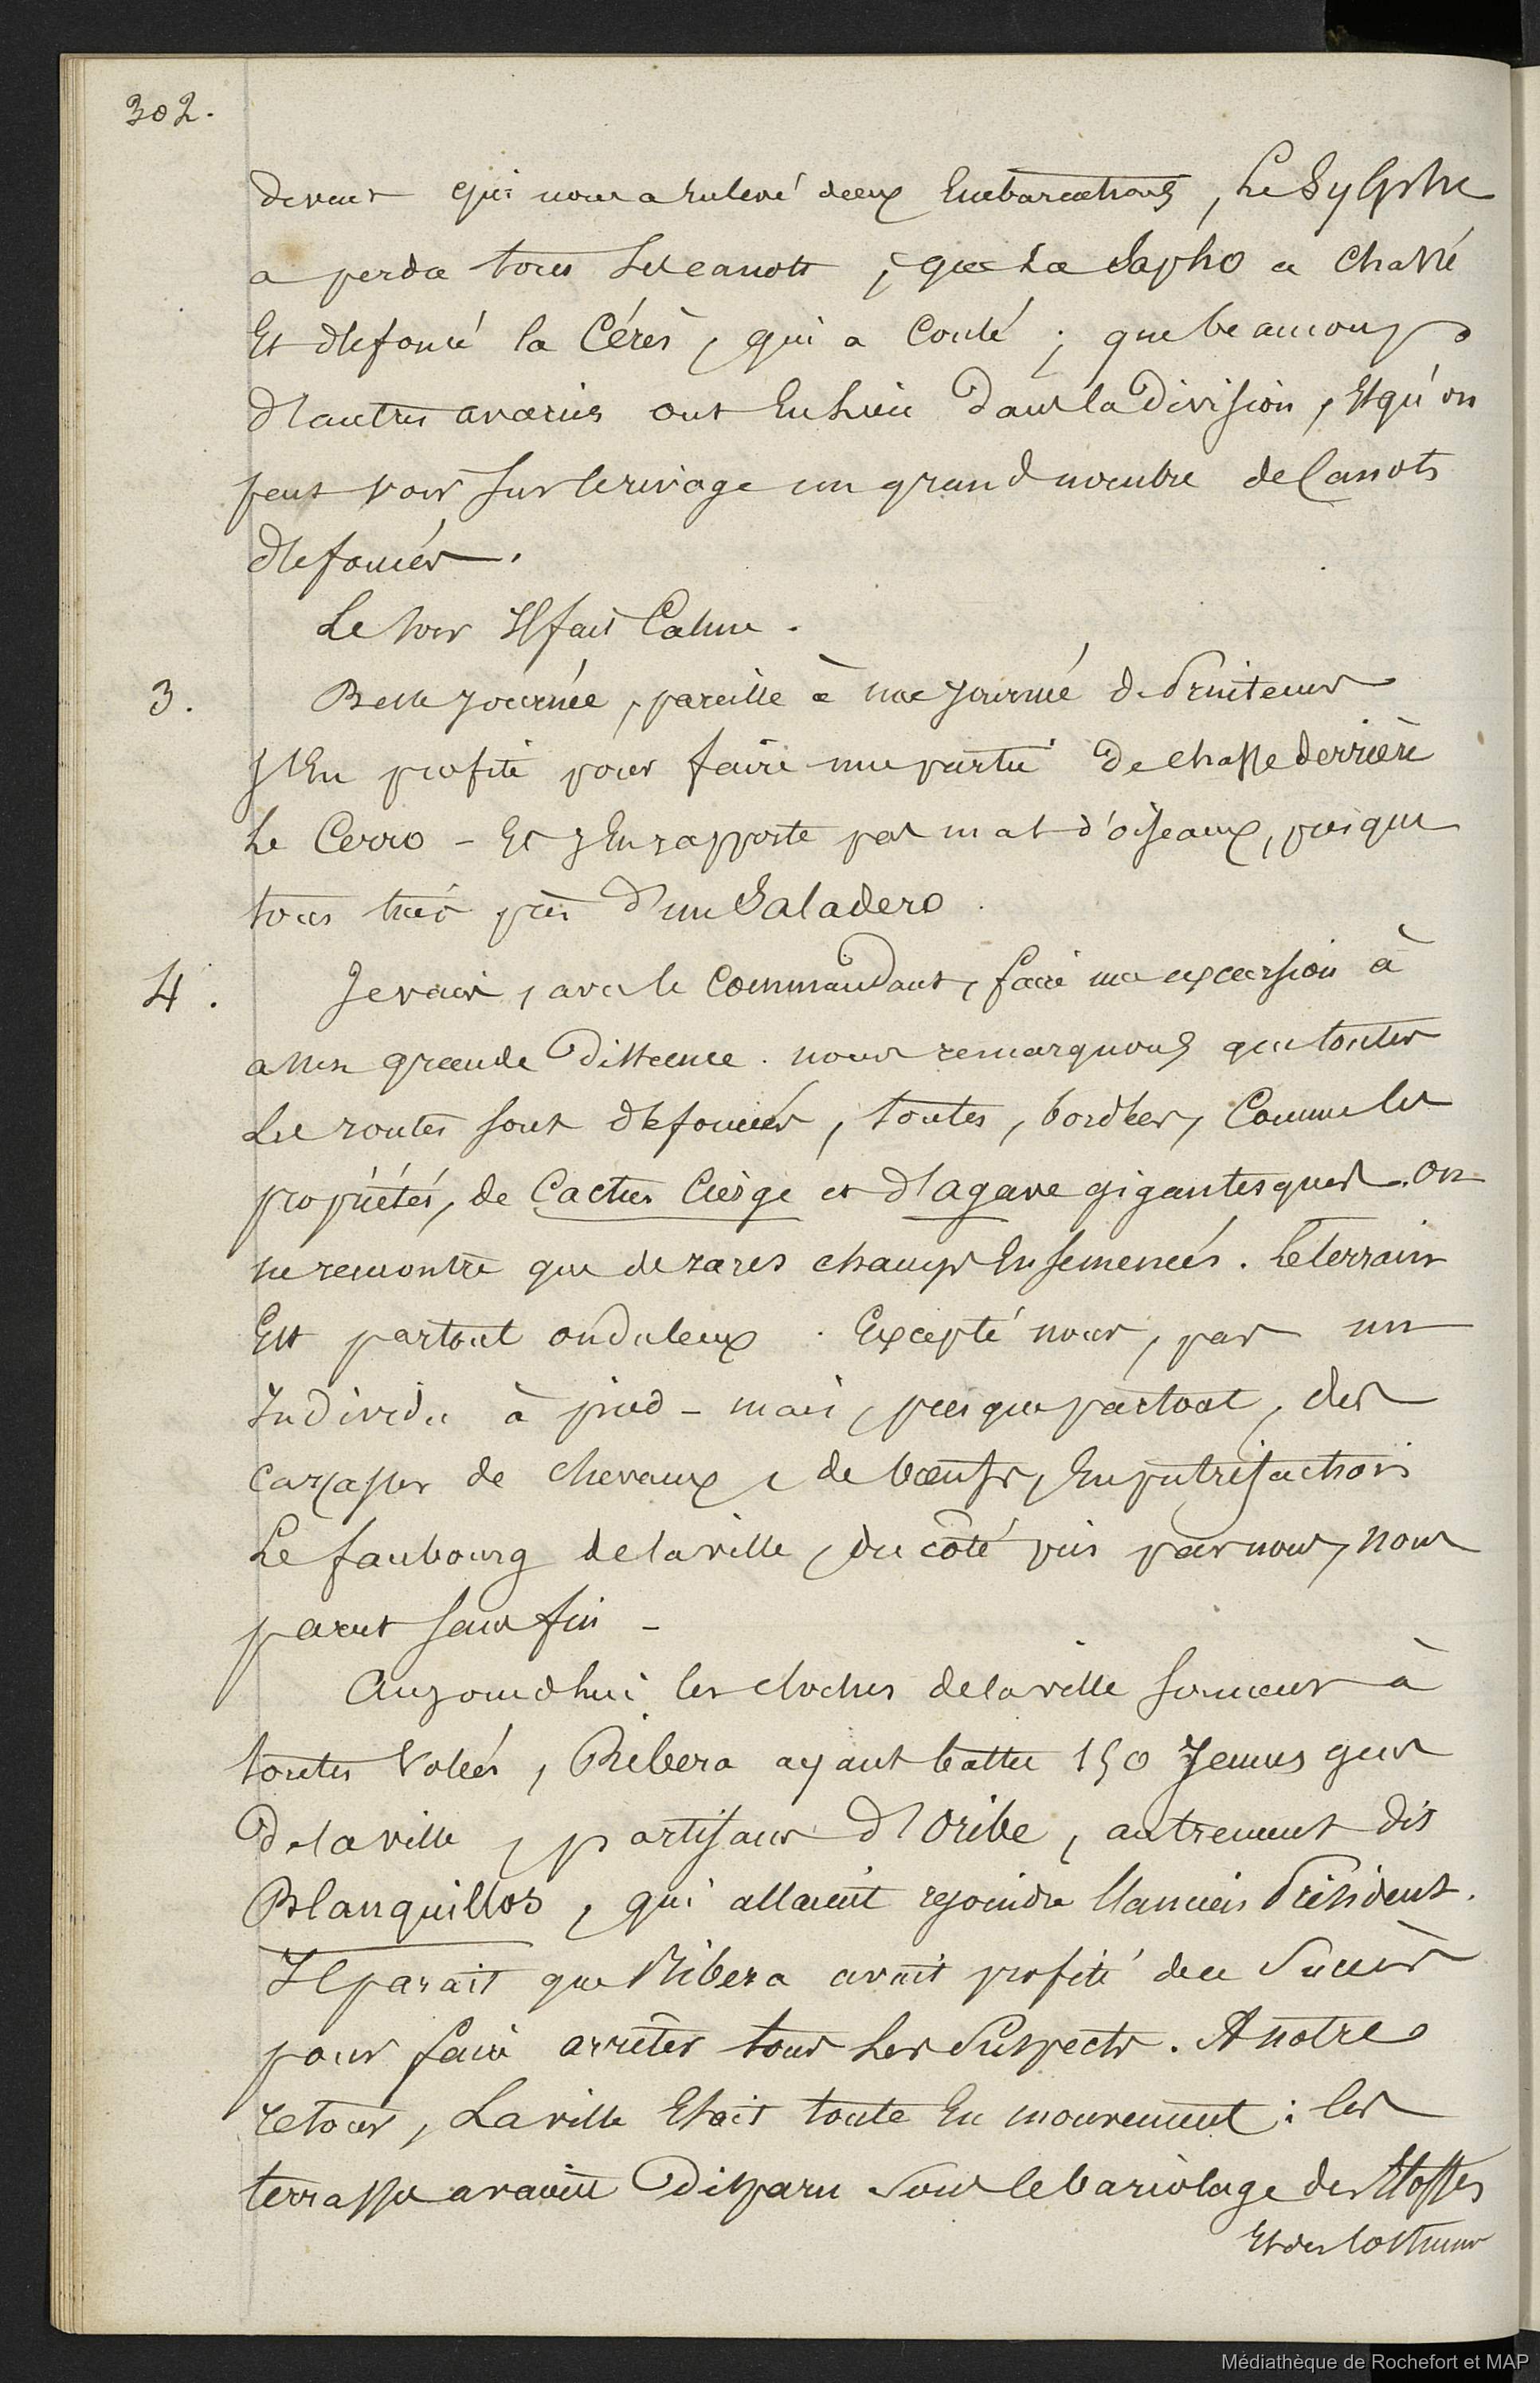 302.
devant qui nous a enlevé deux Embarcations, Le Sylphe
a perdu tous ses canots ; que La Sapho a chassé
Et défoncé la Cérès, qui a coulé ; que beaucoup
d'autres avaries ont eu lieu dans la Division, Et qu'on
peut voir sur le rivage un grand nombre de Canots
défoncés.
Le soir Il fait Calme.
3. Belle journée, pareille à une journée de Printemps
J'En profite pour faire une partie de chasse derrière
Le Cerro - Et j'En rapporte pas mal d'oiseaux, presque
tous tués près d'un Saladero.
4. Je vais, avec le Commandant, faire une excursion à
assez grande Distance. nous remarquons que toutes
Les routes sont défoncées, toutes, bordées, Comme les
propriétés, de Cactus Cierge et d'agave gigantesques. On
ne rencontre que de rares champs Ensemencés. Le terrain
Est partout onduleux. Excepté nous, pas un
Individu à pied - mais, presque partout, des
carcasses de chevaux, de bœufs, En putréfaction
Le faubourg de la ville, du côté pris par nous, nous
parut sans fin -
Aujourdhui les cloches de la ville sonnent à
toutes Volées, Ribera ayant battu 150 Jeunes gens
De la ville, partisans d'Oribe, autrement dit
Blanquillos, qui allaient rejoindre l'ancien Président.
Il parait que Ribera avait profité de ce Succès
pour faire arrêter tous Les Suspects. A notre
retour, La ville Etait toute En mouvement : les
terrasses avaient Disparu Sous le bariolage des Etoffes
Et des Costumes
Médiathèque de Rochefort et MAP